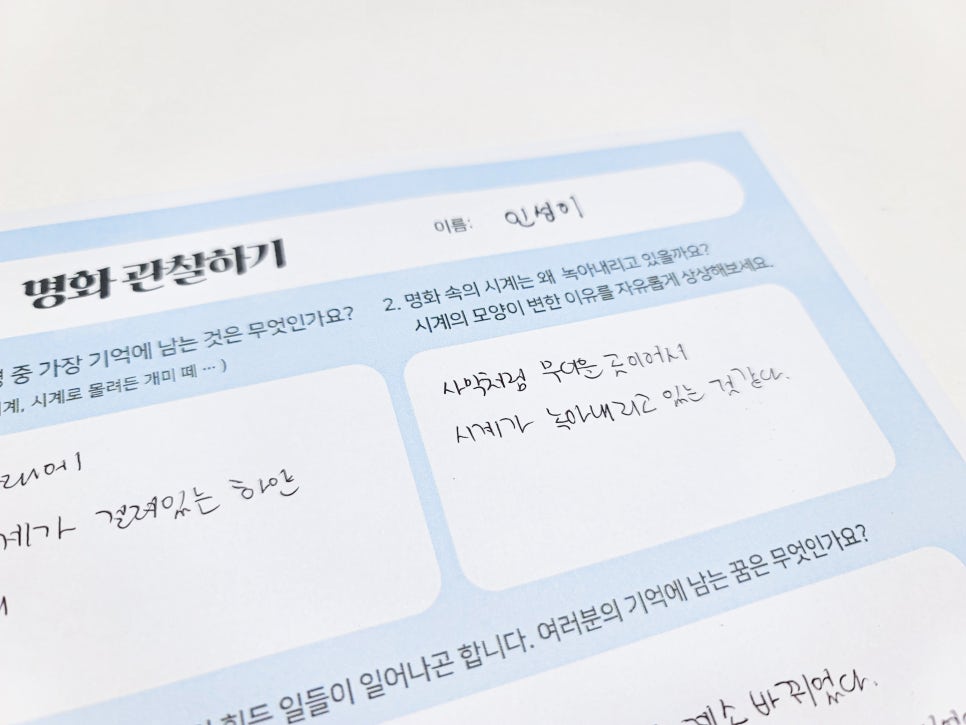 이름: 인성이
명화 관찰하기
중 가장 기억에 남는 것은 무엇인가요?
시계로 몰려든 개미 떼 … )
걸려있는 하얀
2. 명화 속의 시계는 왜 녹아내리고 있을까요?
시계의 모양이 변한 이유를 자유롭게 상상해보세요.
사막처럼 무더운 곳이어서
시계가 녹아내리고 있는 것 같다.
힘든 일들이 일어나곤 합니다. 여러분의 기억에 남는 꿈은 무엇인가요?
계속 바뀌었다.